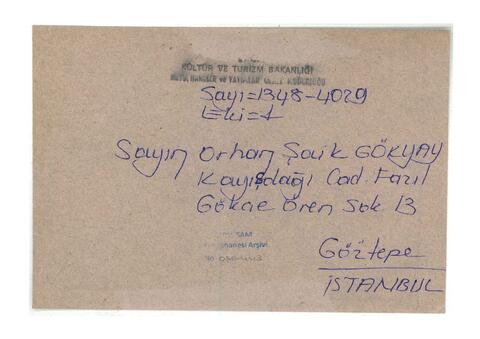 KÜLTÜR VE TURİZM BAKANLIĞI
Sayı=1348-4029
Eki=1
Sayın Orhan Şaik GÖKYAY
Kayışdağı Cad. Fazıl
Gökçe Ören Sok 13
Göztepe
İSTANBUL
hanesi Arşivi